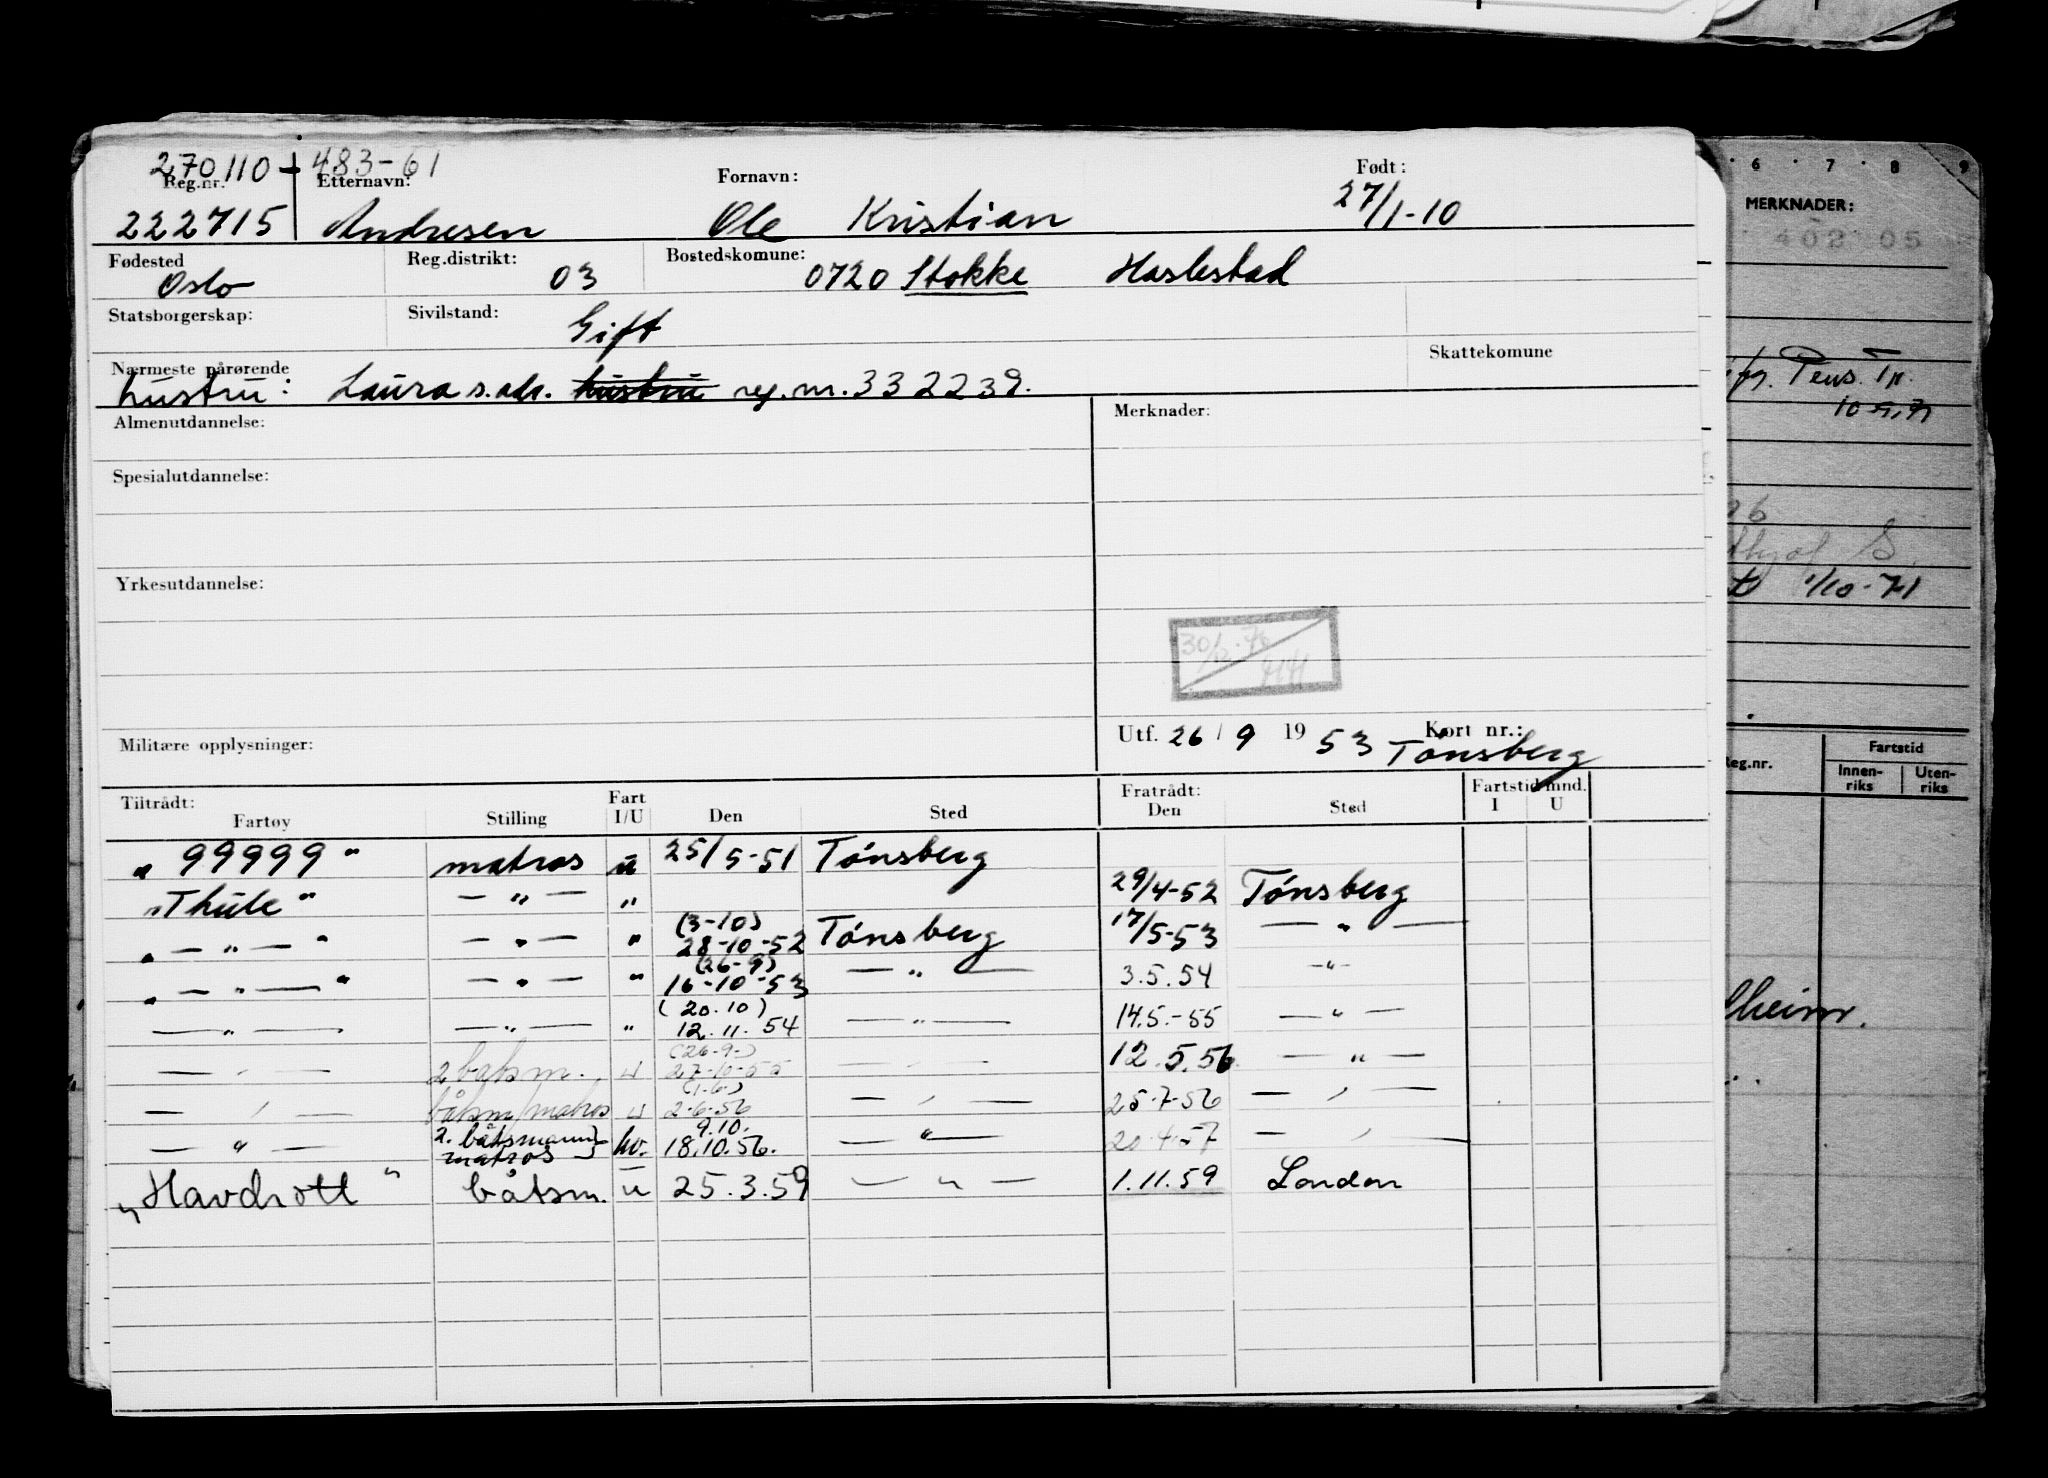 270110 - 483-61
Reg.nr. Etternavn: Fornavn: Født:
222715 Andresen Ole Kristian 27/1-10
Fødested Reg.distrikt: Bostedskomune:
Oslo 03 0720 Stokke Haslestad
Statsborgerskap: Sivilstand: Gift
Nærmeste pårørende Skattekomune
hustru: Laura s.adr. hustru reg.nr. 332239.
Almenutdannelse: Merknader:
Spesialutdannelse:
Yrkesutdannelse:
Militære opplysninger: Utf. 26/9 1953 Kort nr.: Tönsberg
Tiltrådt: Fart Fratrådt: Fartstid mnd.
Fartøy Stilling I/U Den Sted Den Sted I U
" 99999 " matros u 25/5-51 Tónsberg
"Thule" — " — " 29/4-52 Tónsberg
(3-10)
" — " — " — " — " 28-10-52 Tónsberg 17/5-53 — " —
(26-9)
" — " — " — " — " 16-10-53 — " — 3.5.54 -"-
(20.10)
— " — — " — " 12.11.54 — " — 14.5.-55 — " —
(26-9-)
— " — 2 båtsm. u 27-10-55 — " — 12.5.56. — " —
(1-6-)
— " — båtsm/matros u 2-6-56 — " — 25-7-56 — " —
9.10.
— " — 2. båtsmann} matros hv. 18.10.56. — " — 20.4.57 — " —
"Havdrott" båtsm. u 25.3.59 — " — 1.11.59 London
6 7 8 9
MERKNADER:
402 05
Pens. Tr.
26
S
1/10-71
Reg.nr. Fartstid
Innen-riks Uten-riks
lheim.